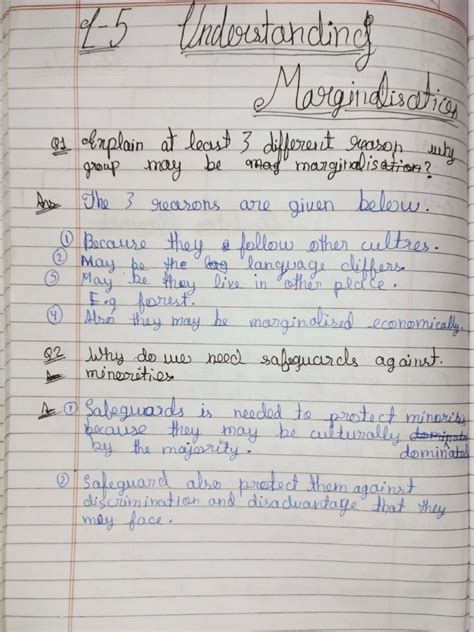 L-5 Understanding
Marginalisation
Q1 Explain at least 3 different reason why
group may be mag marginalisation?
Ans The 3 reasons are given below.
① Because they follow other cultres.
② May be the lag language differs.
③ May be they live in other place.
E.g forest.
④ Also they may be marginalised economically.
Q2 Why do we need safeguards against
minorities
A ① Safeguards is needed to protect minorities
because they may be culturally dominate
by the majority. dominated
② Safeguard also protect them against
discrimination and disadvantage that they
may face.